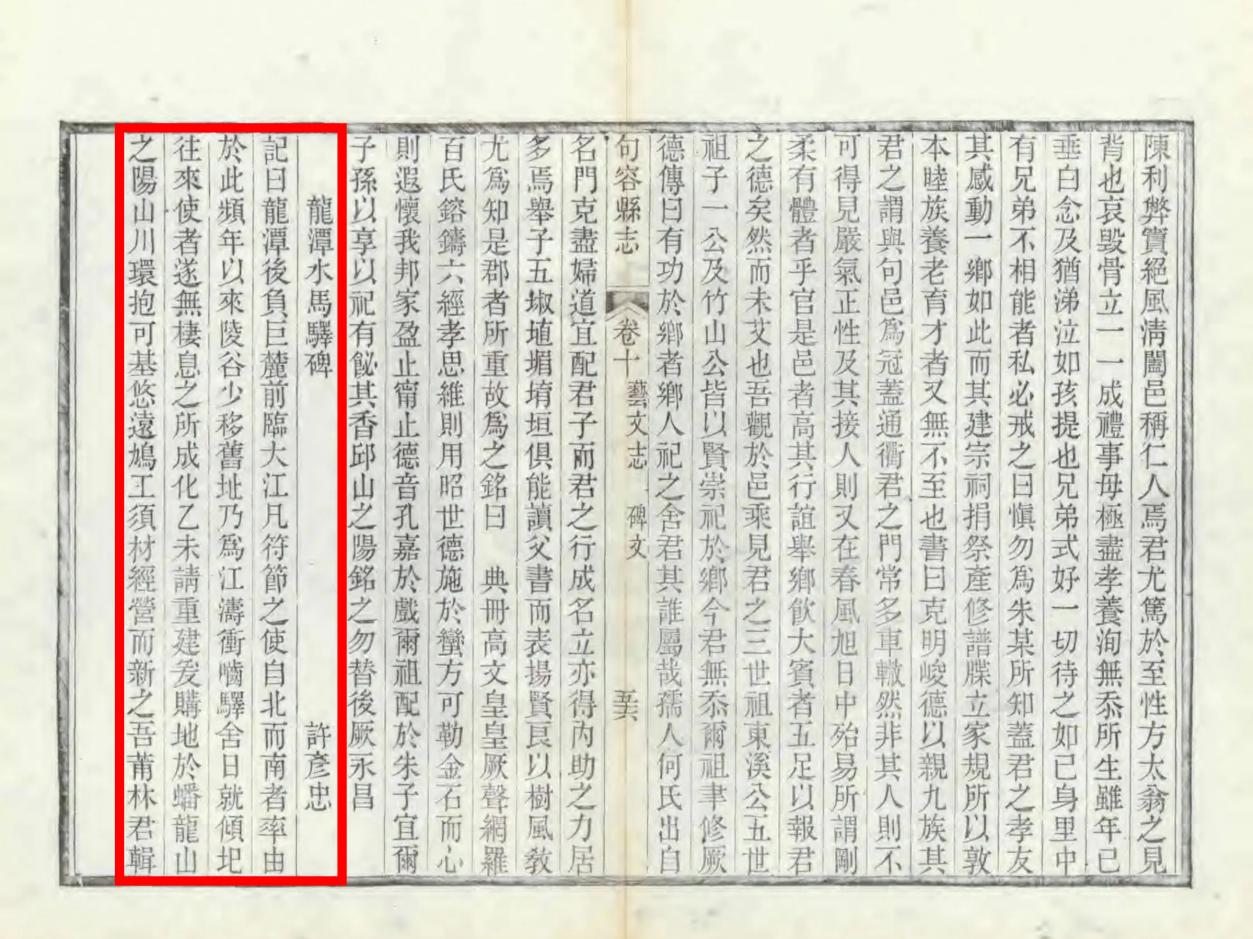 陳利弊實絕風清闔邑稱仁人焉君尤篤於至性方太翁之見
背也哀毀骨立一一成禮事毋極盡孝養洵無忝所生雖年已
垂白念及猶涕泣如孩提也兄弟式好一切待之如已身里中
有兄弟不相能者私必戒之曰愼勿爲朱某所知蓋君之孝友
其感動一鄉如此而其建宗祠捐祭產修譜牒立家規所以敦
本睦族養老育才者又無不至也書曰克明峻德以親九族其
君之謂與句邑爲冠蓋通衢君之門常多車轍然非其人則不
可得見嚴氣正性及其接人則又在春風旭日中殆易所謂剛
柔有體者乎官是邑者高其行誼舉鄉飮大賓者五足以報君
之德矣然而未艾也吾觀於邑乘見君之三世祖東溪公五世
祖子一公及竹山公皆以賢崇祀於鄉今君無忝爾祖聿修厥
德傳曰有功於鄉者鄉人祀之舍君其誰屬哉孺人何氏出自
句容縣志 卷十 藝文志 碑文
名門克盡婦道宜配君子而君之行成名立亦得內助之力居
多焉舉子五埱埴堳堉垣俱能讀父書而表揚賢良以樹風敎
尤爲知是郡者所重故爲之銘曰 典冊高文皇皇厥聲網羅
百氏鎔鑄六經孝思維則用昭世德施於蠻方可勒金石而心
則遐懷我邦家盈止甯止德音孔嘉於戲爾祖配於朱子宜爾
子孫以享以祀有飶其香邱山之陽銘之勿替後厥永昌
龍潭水馬驛碑 許彥忠
記曰龍潭後負巨麓前臨大江凡符節之使自北而南者率由
於此頻年以來陵谷少移舊址乃爲江濤衝嚙驛舍日就傾圯
往來使者遂無棲息之所成化乙未請重建爰購地於蟠龍山
之陽山川環抱可基悠遠鳩工須材經營而新之吾莆林君輯